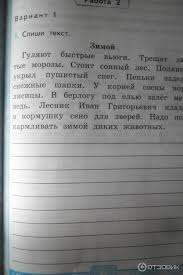 Работа 2
Вариант 1
1. Спиши текст.
Зимой
Гуляют быстрые вьюги. Трещат лю-
тые морозы. Стоит сонный лес. Поляны
укрыл пушистый снег. Пеньки надели
снежные шапки. У корней сосны нора
лисицы. В берлогу под елью залёг мед-
ведь. Лесник Иван Григорьевич кладёт
в кормушку сено для зверей. Надо под-
кармливать зимой диких животных.
ОТЗОВИК